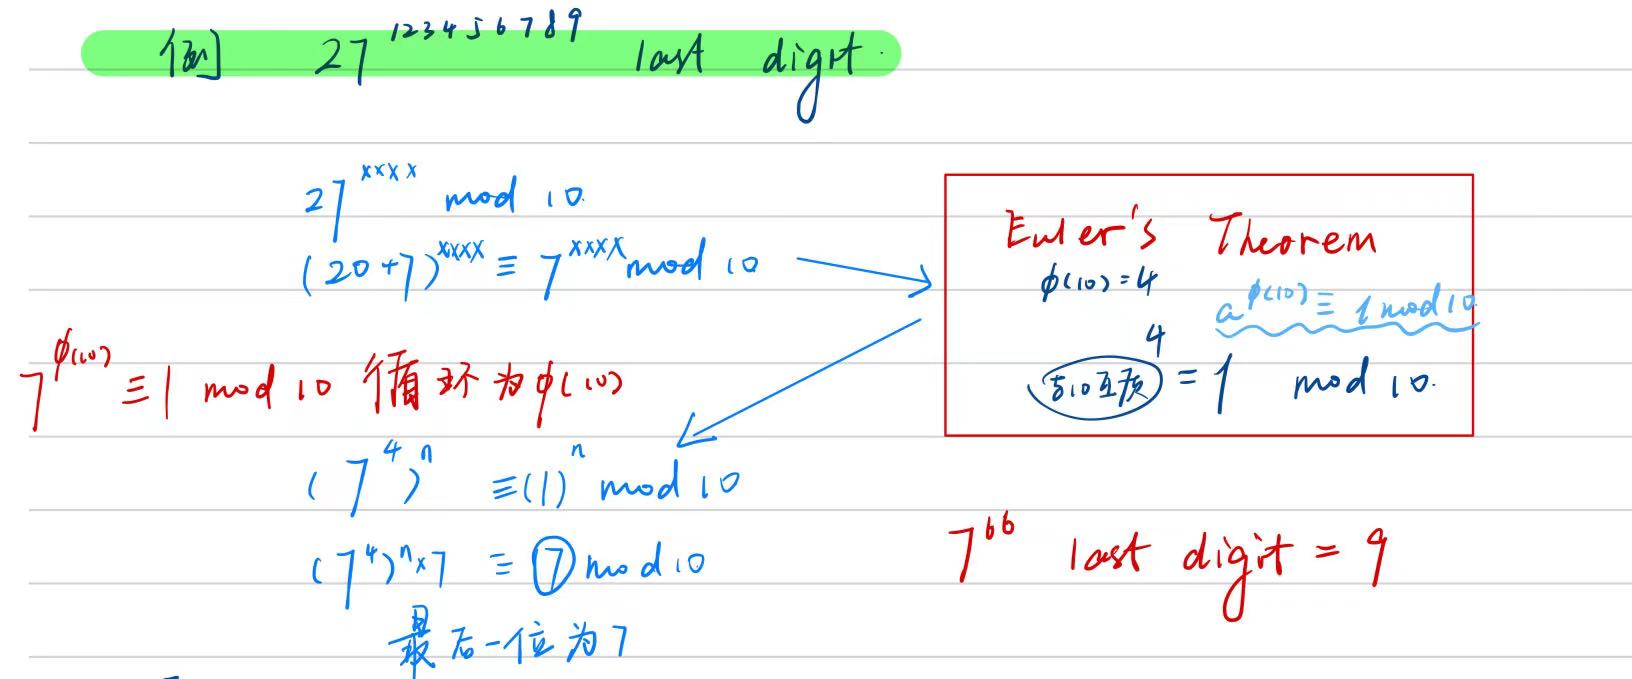 例 27^123456789 last digit.
27^xxxx mod 10.
(20+7)^xxxx ≡ 7^xxxx mod 10
Euler's Theorem
φ(10)=4
a^φ(10) ≡ 1 mod 10
与10互质^4 = 1 mod 10.
7^φ(10) ≡ 1 mod 10 循环为φ(10)
(7^4)^n ≡ (1)^n mod 10
(7^4)^n × 7 ≡ 7 mod 10
最后一位为7
7^66 last digit = 9